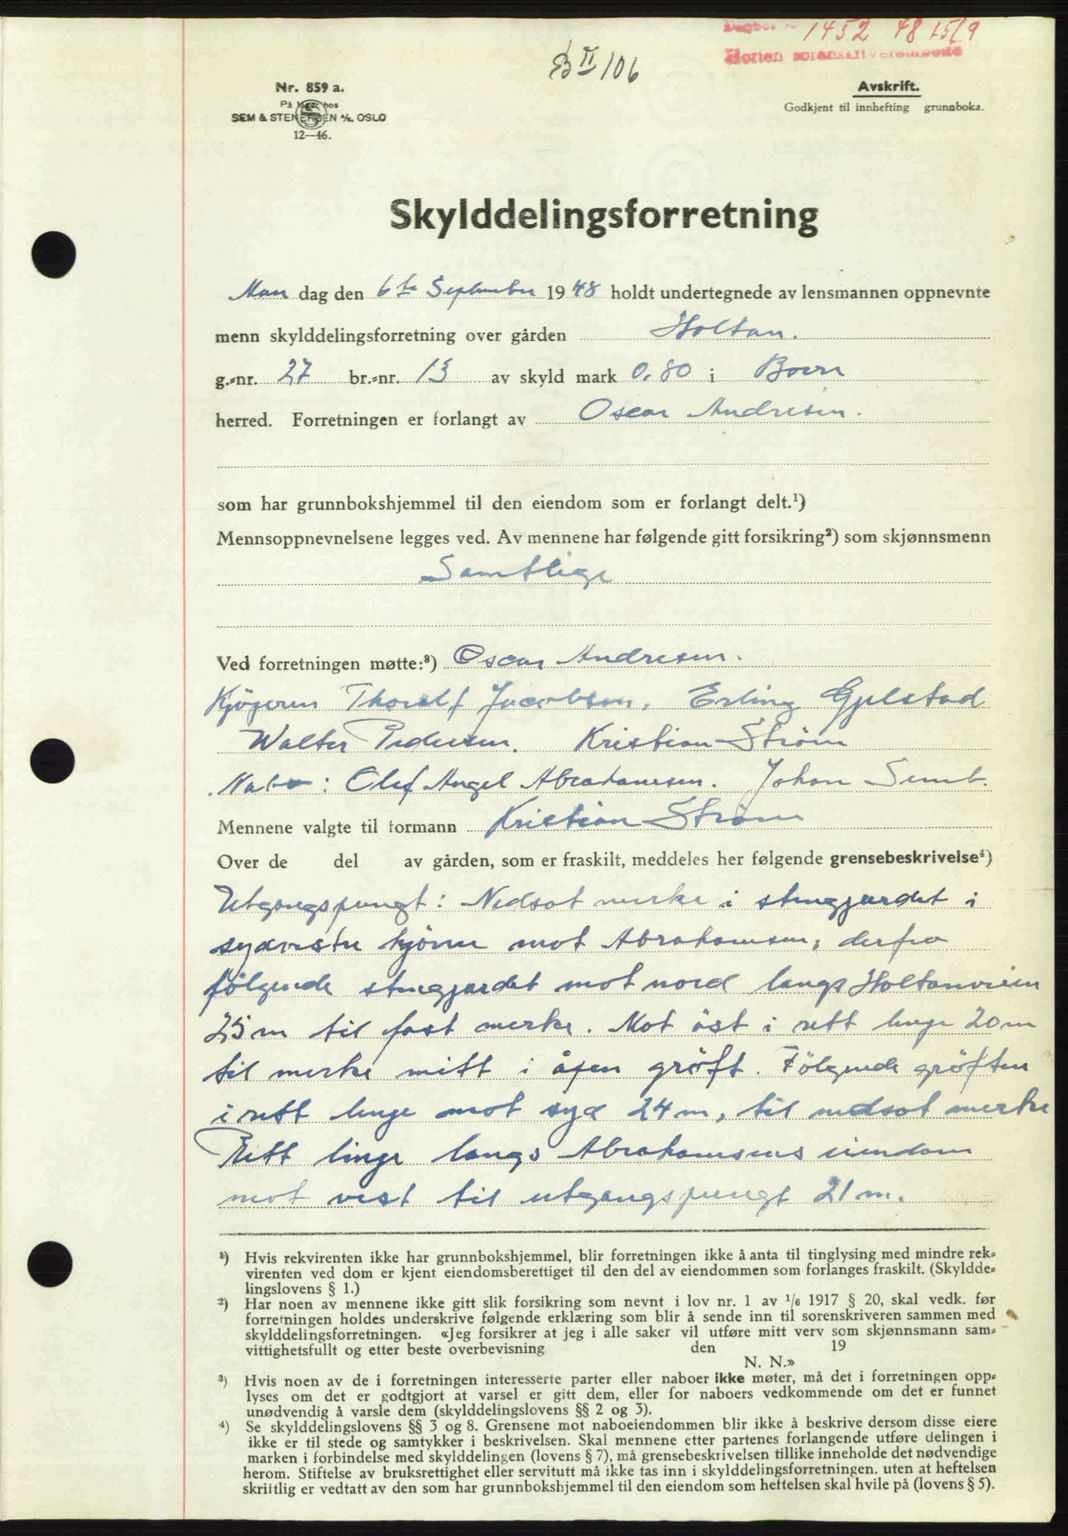 Dagbok nr. 1452 48 15/9
Horten sorenskriverembede
B II 106
Nr. 859 a.
På lager hos
SEM & STENERSEN A/S, OSLO
12—46.
Avskrift.
Godkjent til innhefting grunnboka.
Skylddelingsforretning
Man dag den 6te September 1948 holdt undertegnede av lensmannen oppnevnte
menn skylddelingsforretning over gården Holtan.
g.-nr. 27 br.-nr. 13 av skyld mark 0.80 i Borre
herred. Forretningen er forlangt av Oscar Andresen.
som har grunnbokshjemmel til den eiendom som er forlangt delt.¹)
Mennsoppnevnelsene legges ved. Av mennene har følgende gitt forsikring²) som skjønnsmenn
Samtlige
Ved forretningen møtte:³) Oscar Andresen.
Kjøperen Thoralf Jacobsen. Erling Gjelstad
Walter Pedersen. Kristian Strøm
Nabo: Olef Angel Abrahamsen. Johan Semb.
Mennene valgte til formann Kristian Strøm
Over de del av gården, som er fraskilt, meddeles her følgende grensebeskrivelse⁴)
Utgangspungt: Nedsat merke i stengjerdet i
sydvestre hjörne mot Abrahamsen, derfra
fölgende stengjerdet mot nord langs Holtanveien
25 m til fast merke. Mot öst i rett linje 20 m
til merke mitt i åpen gröft. Fölgende gröften
i rett linje mot syd 24 m, til nedsat merke
Rett linje langs Abrahamsens eiendom
mot vest til utgangspungt 21 m.
¹) Hvis rekvirenten ikke har grunnbokshjemmel, blir forretningen ikke å anta til tinglysing med mindre rek-
virenten ved dom er kjent eiendomsberettiget til den del av eiendommen som forlanges fraskilt. (Skyldde-
lingslovens § 1.)
²) Har noen av mennene ikke gitt slik forsikring som nevnt i lov nr. 1 av ¹/₆ 1917 § 20, skal vedk. før
forretningen holdes underskrive følgende erklæring som blir å sende inn til sorenskriveren sammen med
skylddelingsforretningen. «Jeg forsikrer at jeg i alle saker vil utføre mitt verv som skjønnsmann sam-
vittighetsfullt og etter beste overbevisning den 19
N. N.»
³) Hvis noen av de i forretningen interesserte parter eller naboer ikke møter, må det i forretningen opp-
lyses om det er godtgjort at varsel er gitt dem, eller for naboers vedkommende om det er funnet
unødvendig å varsle dem (skylddelingslovens §§ 2 og 3).
⁴) Se skylddelingslovens §§ 3 og 8. Grensene mot naboeiendommen blir ikke å beskrive dersom disse eiere
ikke er til stede og samtykker i beskrivelsen. Skal mennene etter partenes forlangende utføre delingen i
marken i forbindelse med skylddelingen (lovens § 7), må grensebeskrivelsen tillike inneholde det nødvendige
herom. Stiftelse av bruksrettighet eller servitutt må ikke tas inn i skylddelingsforretningen. uten at heftelsen
skriftlig er vedtatt av den som har grunnbokshjemmel til den eiendom som heftelsen skal hvile på (lovens § 5).